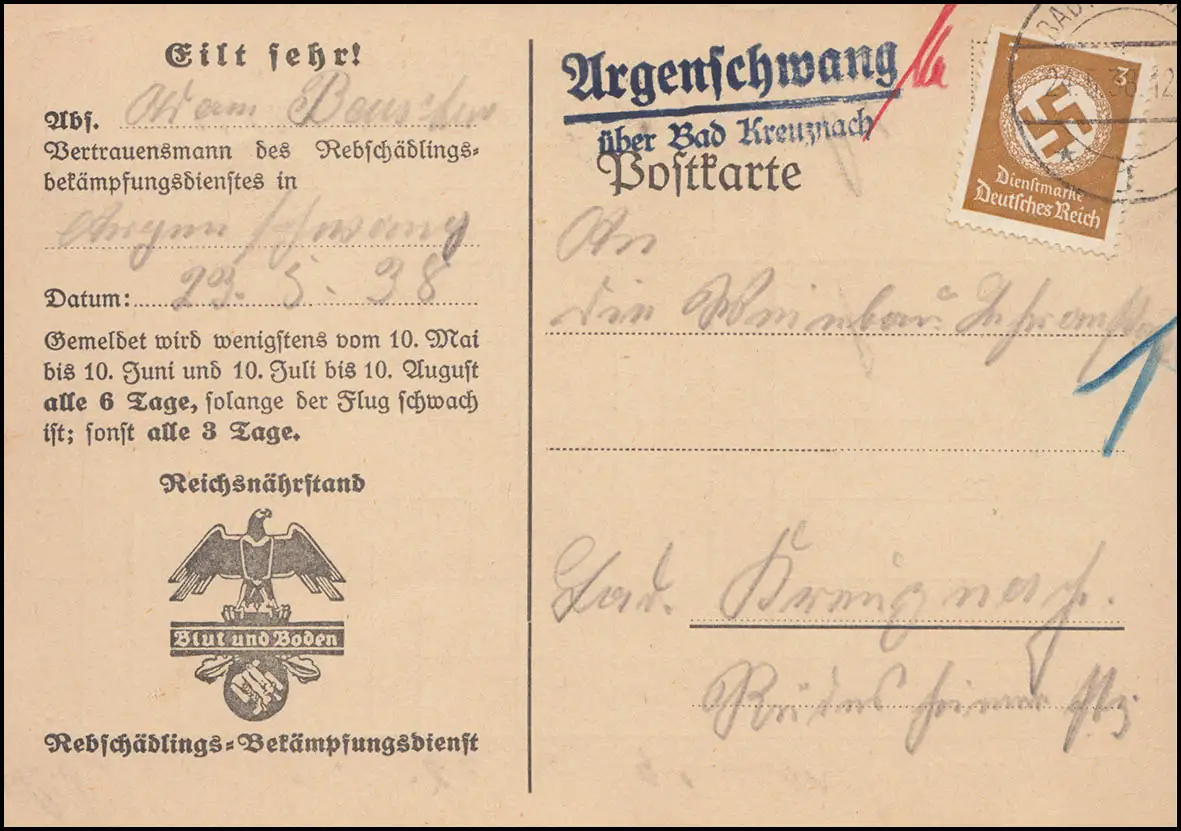 Eilt sehr!
Abs. Adam
Vertrauensmann des Rebschädlings-
bekämpfungsdienstes in
Argenschwang
Datum: 23. 5. 38
Gemeldet wird wenigstens vom 10. Mai
bis 10. Juni und 10. Juli bis 10. August
alle 6 Tage, solange der Flug schwach
ist; sonst alle 3 Tage.
Reichsnährstand
Blut und Boden
Rebschädlings-Bekämpfungsdienst
Argenschwang
über Bad Kreuznach
Postkarte
3
Dienstmarke
Deutsches Reich
BAD
38.12
An
die Weinbau-Lehranstalt
Bad. Kreuznach.
Rüdesheimer Str.
1